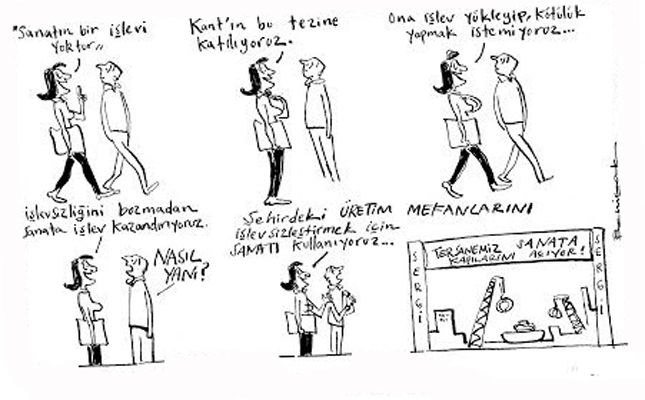 "Sanatın bir işlevi
yoktur"
Kant'ın bu tezine
katılıyoruz.
Ona işlev yükleyip, kötülük
yapmak istemiyoruz...
işlevsizliğini bozmadan
sanata işlev kazandırıyoruz.
NASIL
YANİ?
Şehirdeki ÜRETİM MEKANLARINI
işlevsizleştirmek için
SANATI kullanıyoruz...
TERSANEMİZ SANATA
KAPILARINI AÇIYOR!
SERGİ
SERGİ